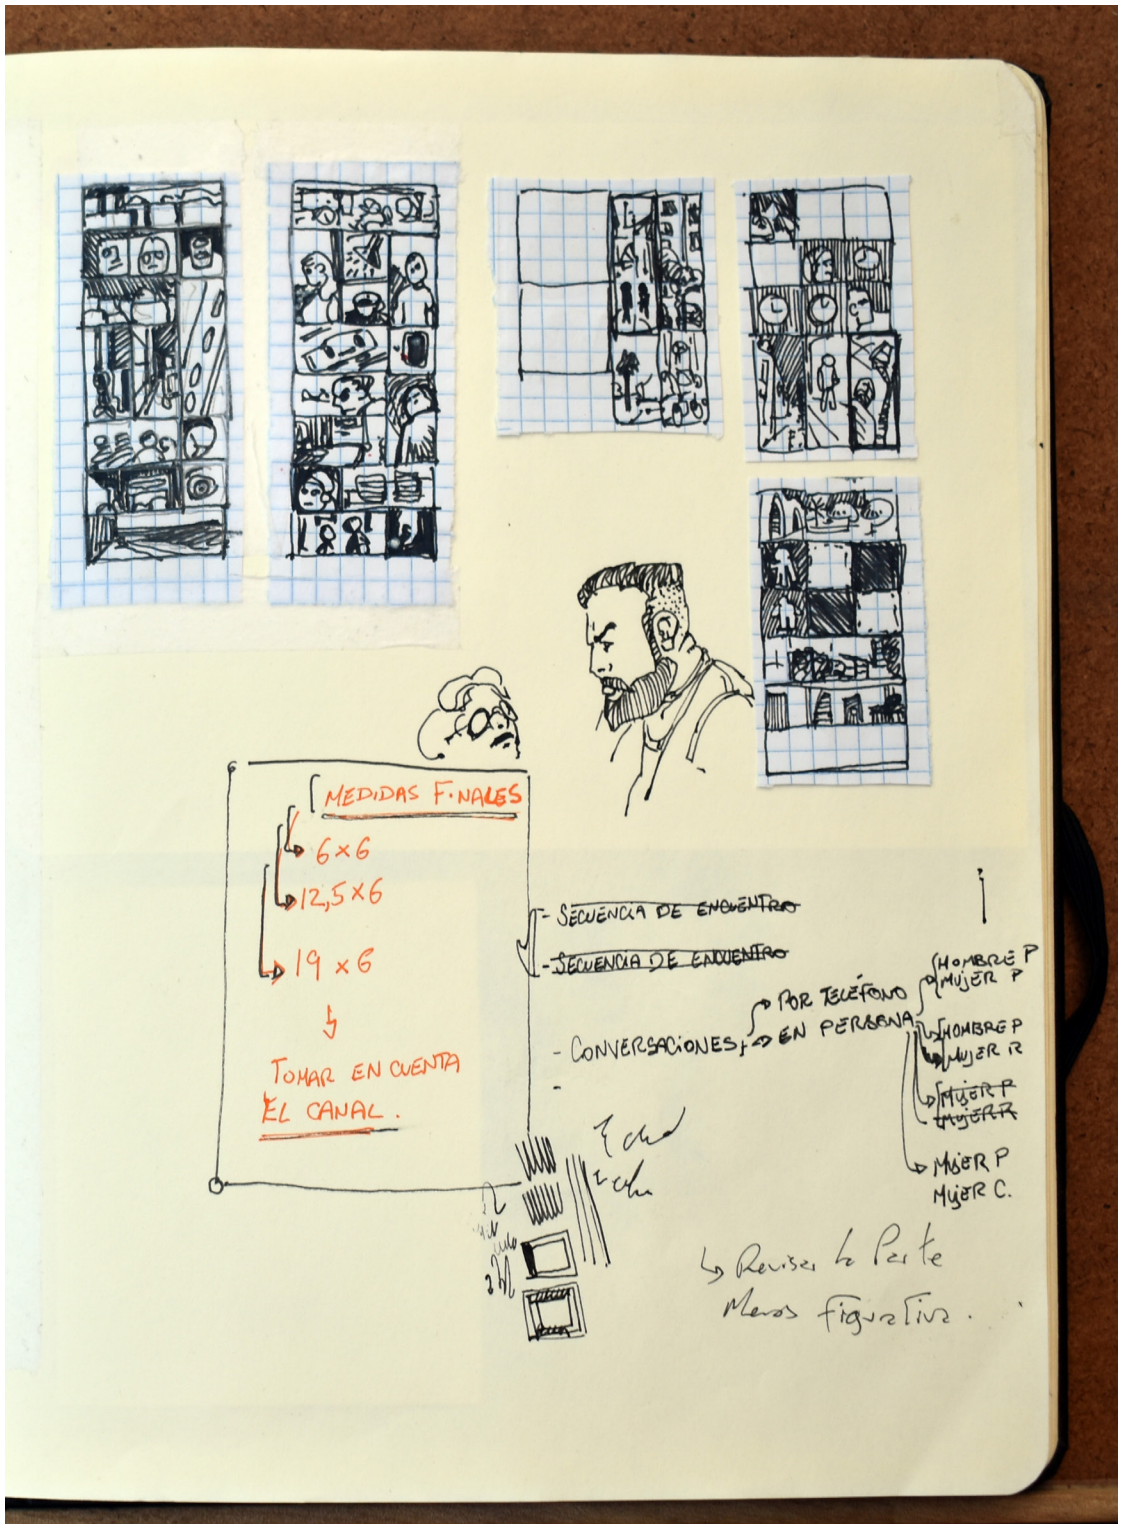 MEDIDAS FINALES
6×6
12,5×6
19×6
TOMAR EN CUENTA
EL CANAL.
- SECUENCIA DE ENCUENTRO
- SECUENCIA DE ENCUENTRO
- CONVERSACIONES
POR TELÉFONO
EN PERSONA
HOMBRE P
MUJER P
HOMBRE P
MUJER R
MUJER P
MUJER R
MUJER P
MUJER C.
Revisar la Parte
Menos Figurativa.